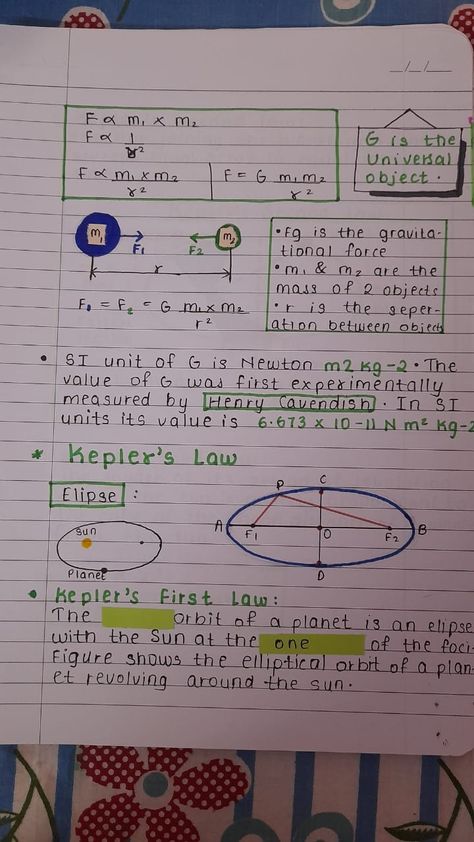 _/_/_
F ∝ m₁ × m₂
F ∝ 1/r²
F ∝ m₁ × m₂ / r²
F = G m₁ m₂ / r²
G is the
universal
object.
m₁
F₁
F₂
m₂
r
F₁ = F₂ = G m₁ × m₂ / r²
• Fg is the gravita-
tional force
• m₁ & m₂ are the
mass of 2 objects
• r is the seper-
ation between objects
• SI unit of G is Newton m2 kg-2. The
value of G was first experimentally
measured by Henry Cavendish. In SI
units its value is 6.673 × 10 -11 N m² kg-2
* Kepler's Law
Elipse :
Sun
Planet
P
C
A
F1
O
F2
B
D
• Kepler's First Law:
The orbit of a planet is an elipse
with the Sun at the one of the foci.
Figure shows the elliptical orbit of a plan-
et revolving around the sun.